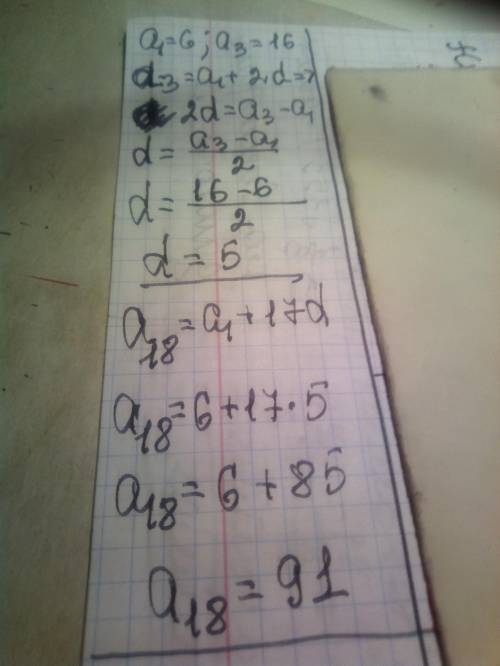 a₁=6; a₃=16
a₃=a₁+2d=>
2d=a₃-a₁
d=(a₃-a₁)/2
d=(16-6)/2
d=5
a₁₈=a₁+17d
a₁₈=6+17·5
a₁₈=6+85
a₁₈=91